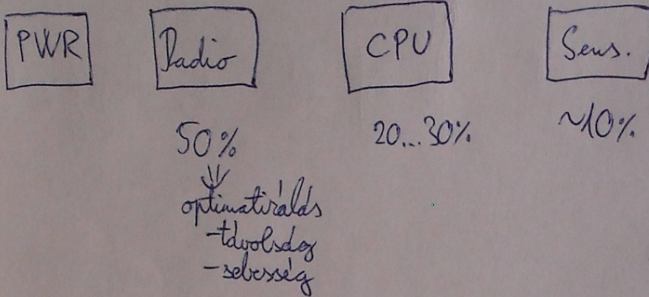 PWR Radio CPU Sens.
50% 20...30% ~10%
optimatizálás
-távolság
-sebesség